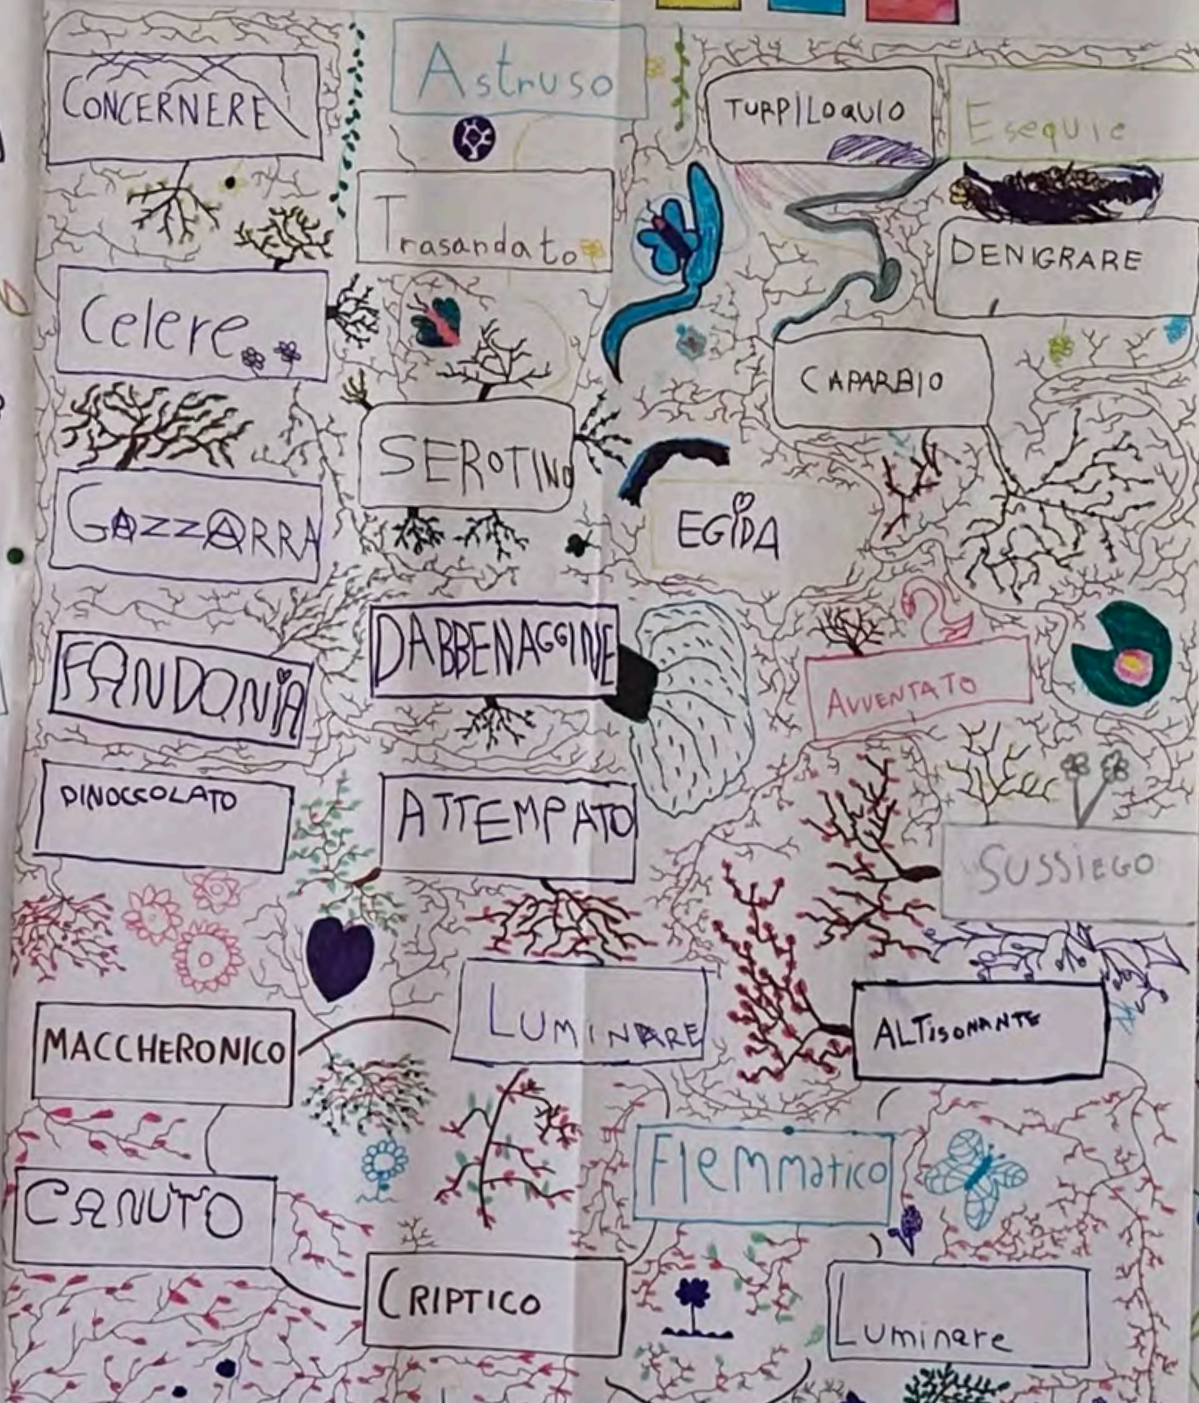 CONCERNERE
Astruso
TURPILOQUIO
Esequie
Trasandato
DENIGRARE
Celere
CAPARBIO
SEROTINO
GAZZARRA
EGIDA
FANDONIA
DABBENAGGINE
AVVENTATO
DINOCCOLATO
ATTEMPATO
SUSSIEGO
MACCHERONICO
LUMINARE
ALTISONANTE
CANUTO
Flemmatico
CRIPTICO
Luminare